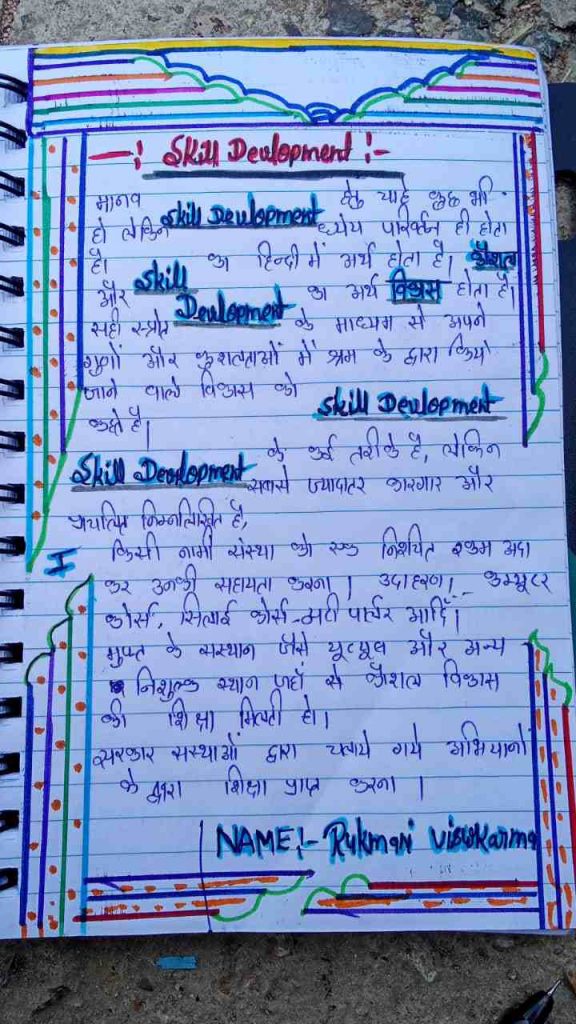 -: Skill Devlopment :-
मानव हेतु चाहे कुछ भी
हो लेकिन Skill Development ध्येय परिवर्तन ही होता
है। Skill का हिन्दी में अर्थ होता है। कौशल
और Devlopment का अर्थ विकास होता है।
सही स्त्रोत के माध्यम से अपने
गुणों और कुशलताओं में श्रम के द्वारा किये
जाने वाले विकास को Skill Development
कहते है।
Skill Development के कई तरीके है, लेकिन
सबसे ज्यादातर कारगार और
प्रचलित निम्नलिखित है,
I किसी नामी संस्था को एक निश्चित रकम अदा
कर उनकी सहायता करना। उदाहरण!- कम्प्यूटर
कोर्स, सिलाई कोर्स आदि।
मुफ्त के संस्थान जैसे यूट्यूब और अन्य
निशुल्क स्थान जहाँ से कौशल विकास
की शिक्षा मिलती हो।
सरकार सस्थाओं द्वारा चलाये गये अभियानों
के द्वारा शिक्षा प्राप्त करना।
NAME:- Rukmani Viswkarma